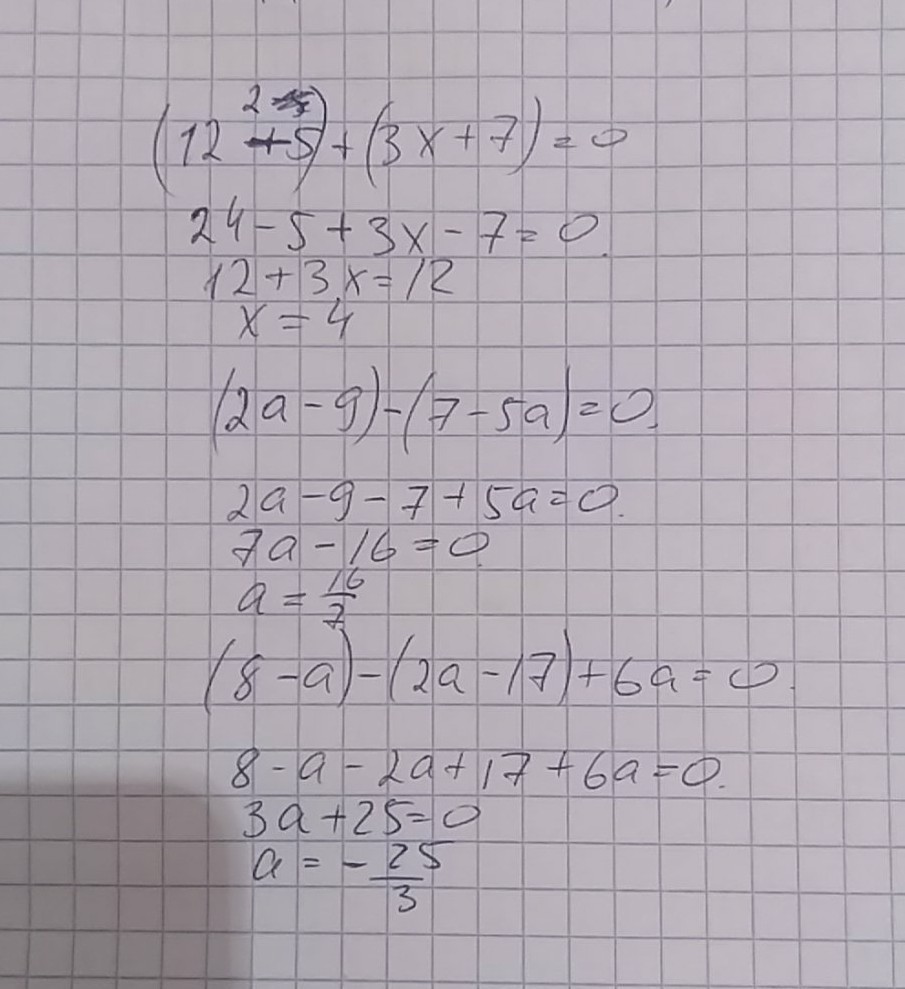 (12 + 5) + (3x + 7) = 0
24 - 5 + 3x - 7 = 0.
12 + 3x = 12
x = 4
(2a - 9) - (7 - 5a) = 0.
2a - 9 - 7 + 5a = 0.
7a - 16 = 0
a = 16/7
(8 - a) - (2a - 17) + 6a = 0.
8 - a - 2a + 17 + 6a = 0.
3a + 25 = 0
a = - 25/3